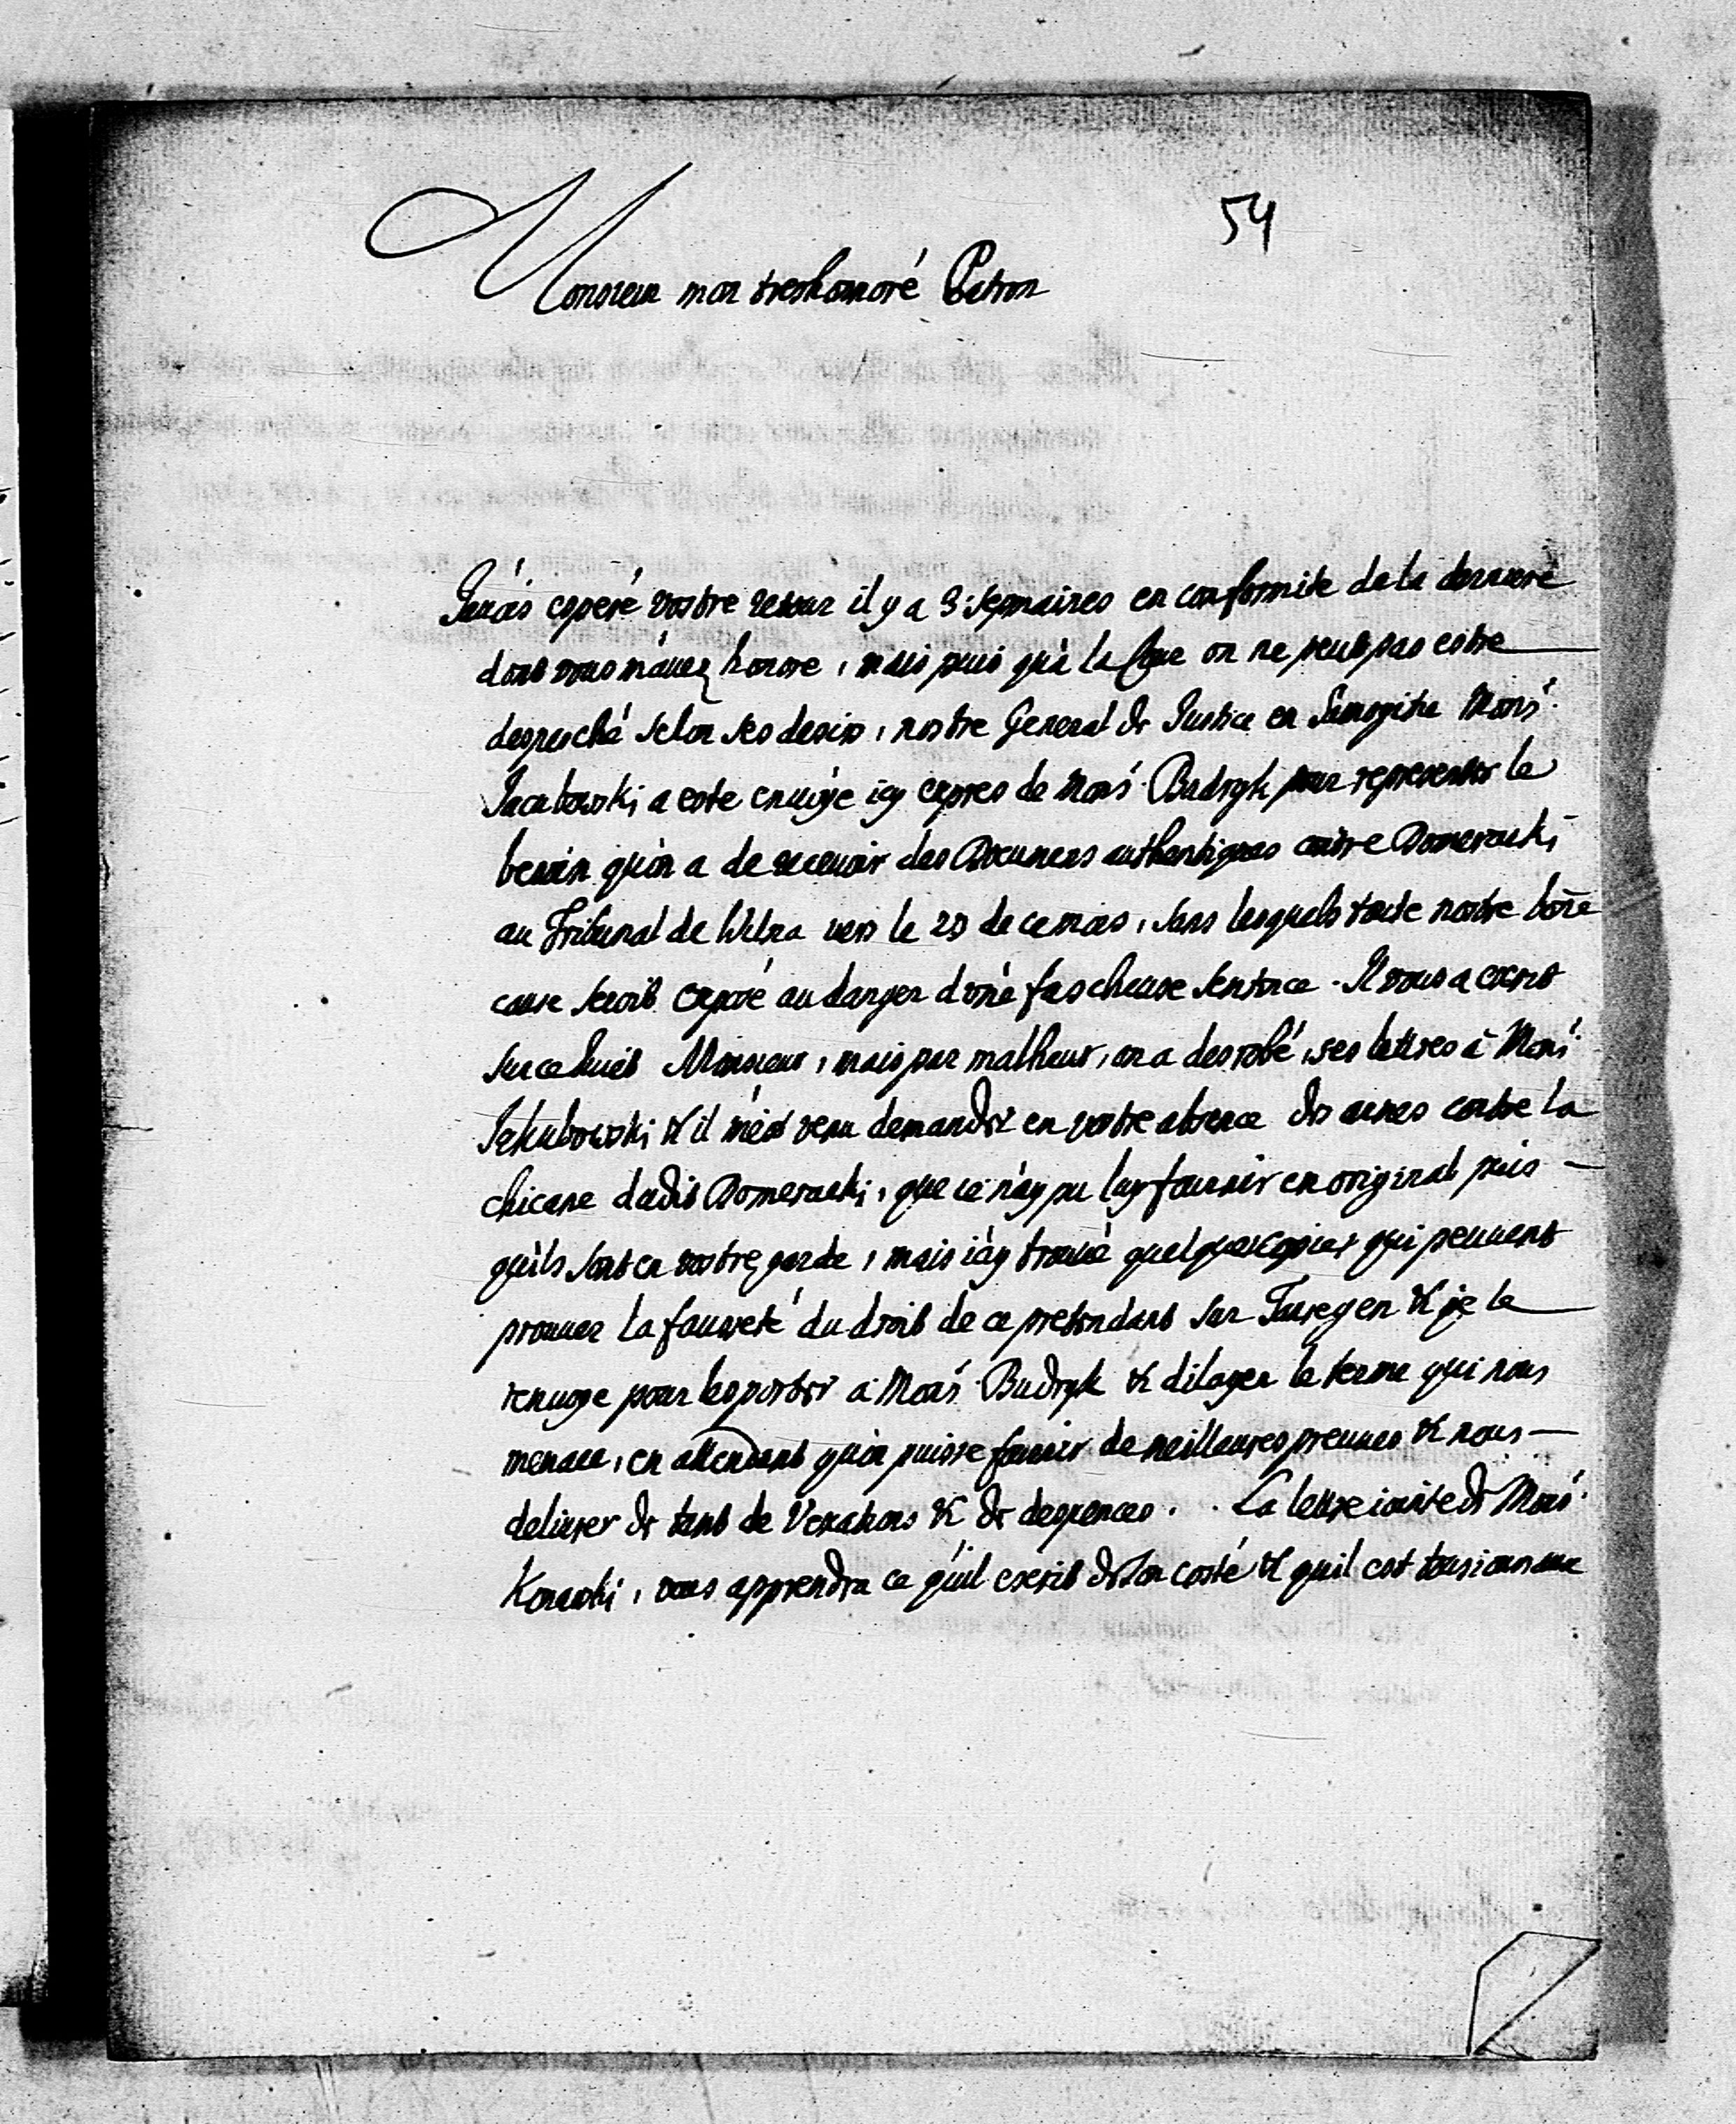 54
Monsieur mon treshonoré Patron
J'auois esperé vostre retour il y a 3 sepmaines en conformite de la derniere
dont vous m'auez honore, mais puis qu'à la Cour on ne peut pas estre
despesché selon ses desirs, nostre General de Justice en Samogitie Mons:
Jacubowski a esté enuoyé icy expres de Mons: Budryk pour representer le
besoin qu'on a de receuoir des Documens authentiques contre Domeracki
au Tribunal de Wilna vers le 20 de ce mois, sans lesquels toute nostre bōne
cause seroit exposé au danger d'vne fascheuse sentence. Il vous a escrit
sur ce suiet Monsieur, mais par malheur, on a desrobé ses lettres à Mons:
Jakubowski & il m'est venu demander en vostre absence des armes contre la
chicane dudit Domeracki, que ie n'ay pu luy fournir en original puis
qu'ils sont en vostre garde, mais i'ay trouué quelques copies qui peuuent
prouuer la fausseté du droit de ce pretendant sur Taurogen & je le
renuoye pour les porter a Mons: Budryk & dilayer le terme qui nous
menace, en attendant qu'on puisse fournir de meilleures preuues & nous
deliurer de tant de Vexations & de despences. La lettre iointe de Mons:
Konarski, vous apprendra ce qu'il escrit de son costé & qu'il est tousiours une